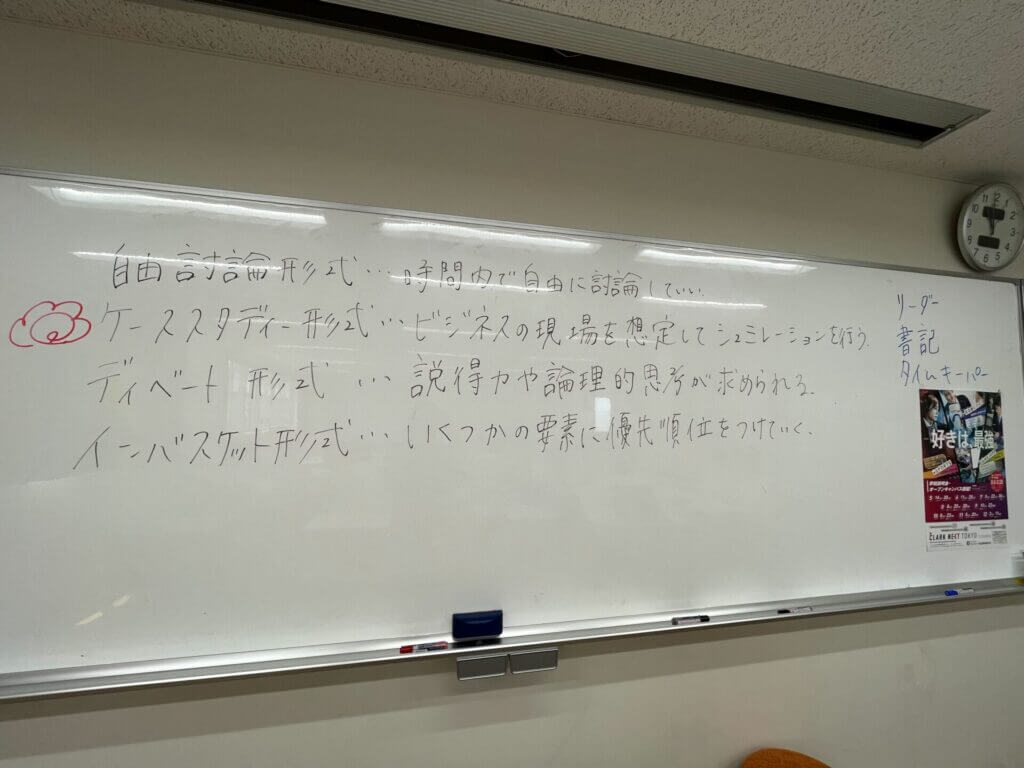 自由討論形式…時間内で自由に討論していい.
ケーススタディー形式…ビジネスの現場を想定してシュミレーションを行う.
ディベート形式…説得力や論理的思考が求められる.
インバスケット形式…いくつかの要素に優先順位をつけていく.
リーダー
書記
タイムキーパー
好きは、最強
オープンキャンパス
CLARK NEXT TOKYO